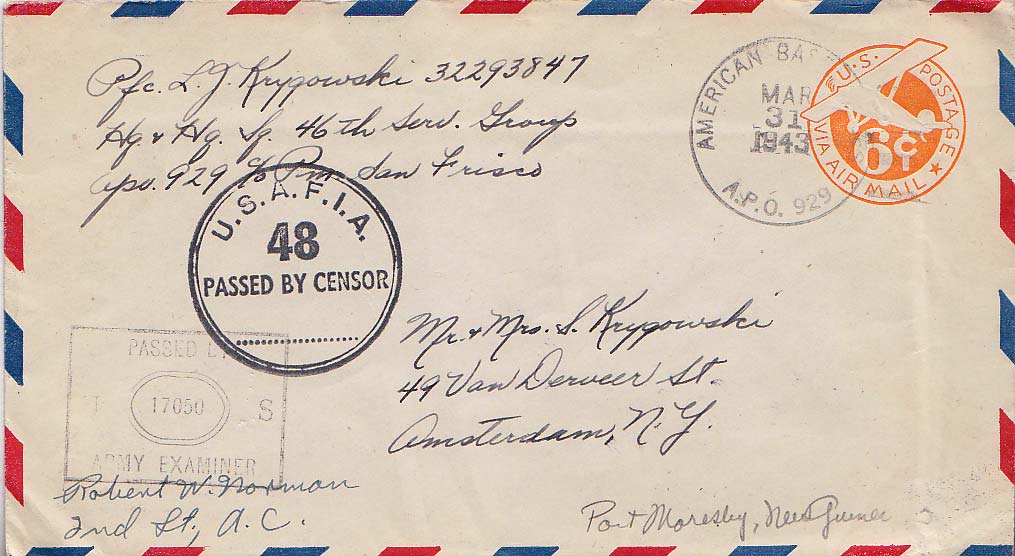 Pfc. L.J. Krygowski 32293847
Hq & Hq. Sq. 46th Serv. Group
apo. 929 c/o Pm. San Frisco
AMERICAN BA
MAR
31
1943
A.P.O. 929
U.S. POSTAGE
6c
VIA AIR MAIL
U.S.A.F.I.A.
48
PASSED BY CENSOR
Mr. & Mrs. S. Krygowski
49 Van Derveer St.
Amsterdam, N.Y.
PASSED B
17050
S
ARMY EXAMINER
Robert W. Norman
2nd Lt, A.C.
Port Moresby, New Guinea